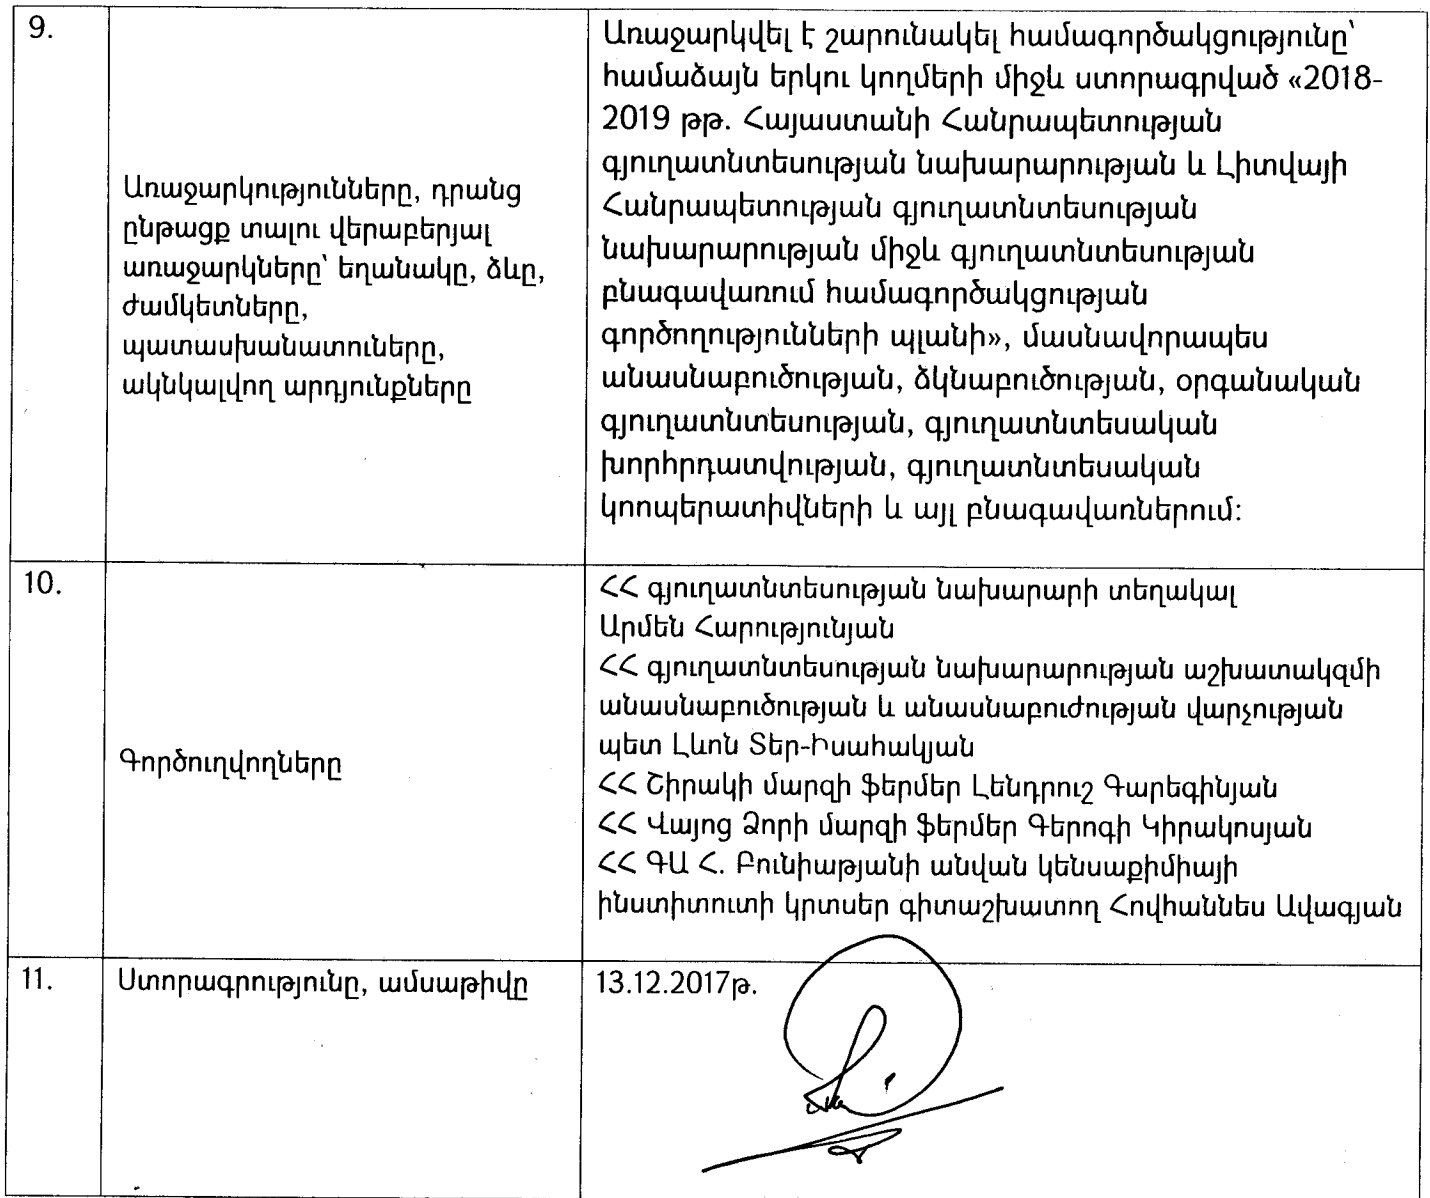 9.
Առաջարկությունները, դրանց
ընթացք տալու վերաբերյալ
առաջարկները՝ եղանակը, ձևը,
ժամկետները,
պատասխանատուները,
ակնկալվող արդյունքները
Առաջարկվել է շարունակել համագործակցությունը՝
համաձայն երկու կողմերի միջև ստորագրված «2018-
2019 թթ. Հայաստանի Հանրապետության
գյուղատնտեսության նախարարության և Լիտվայի
Հանրապետության գյուղատնտեսության
նախարարության միջև գյուղատնտեսության
բնագավառում համագործակցության
գործողությունների պլանի», մասնավորապես
անասնաբուծության, ձկնաբուծության, օրգանական
գյուղատնտեսության, գյուղատնտեսական
խորհրդատվության, գյուղատնտեսական
կոոպերատիվների և այլ բնագավառներում:
10.
Գործուղվողները
ՀՀ գյուղատնտեսության նախարարի տեղակալ
Արմեն Հարությունյան
ՀՀ գյուղատնտեսության նախարարության աշխատակզմի
անասնաբուծության և անասնաբուժության վարչության
պետ Լևոն Տեր-Իսահակյան
ՀՀ Շիրակի մարզի ֆերմեր Լենդրուշ Գարեգինյան
ՀՀ Վայոց Ձորի մարզի ֆերմեր Գերոգի Կիրակոսյան
ՀՀ ԳԱ Հ. Բունիաթյանի անվան կենսաքիմիայի
ինստիտուտի կրտսեր գիտաշխատող Հովհաննես Ավագյան
11.
Ստորագրությունը, ամսաթիվը
13.12.2017թ.